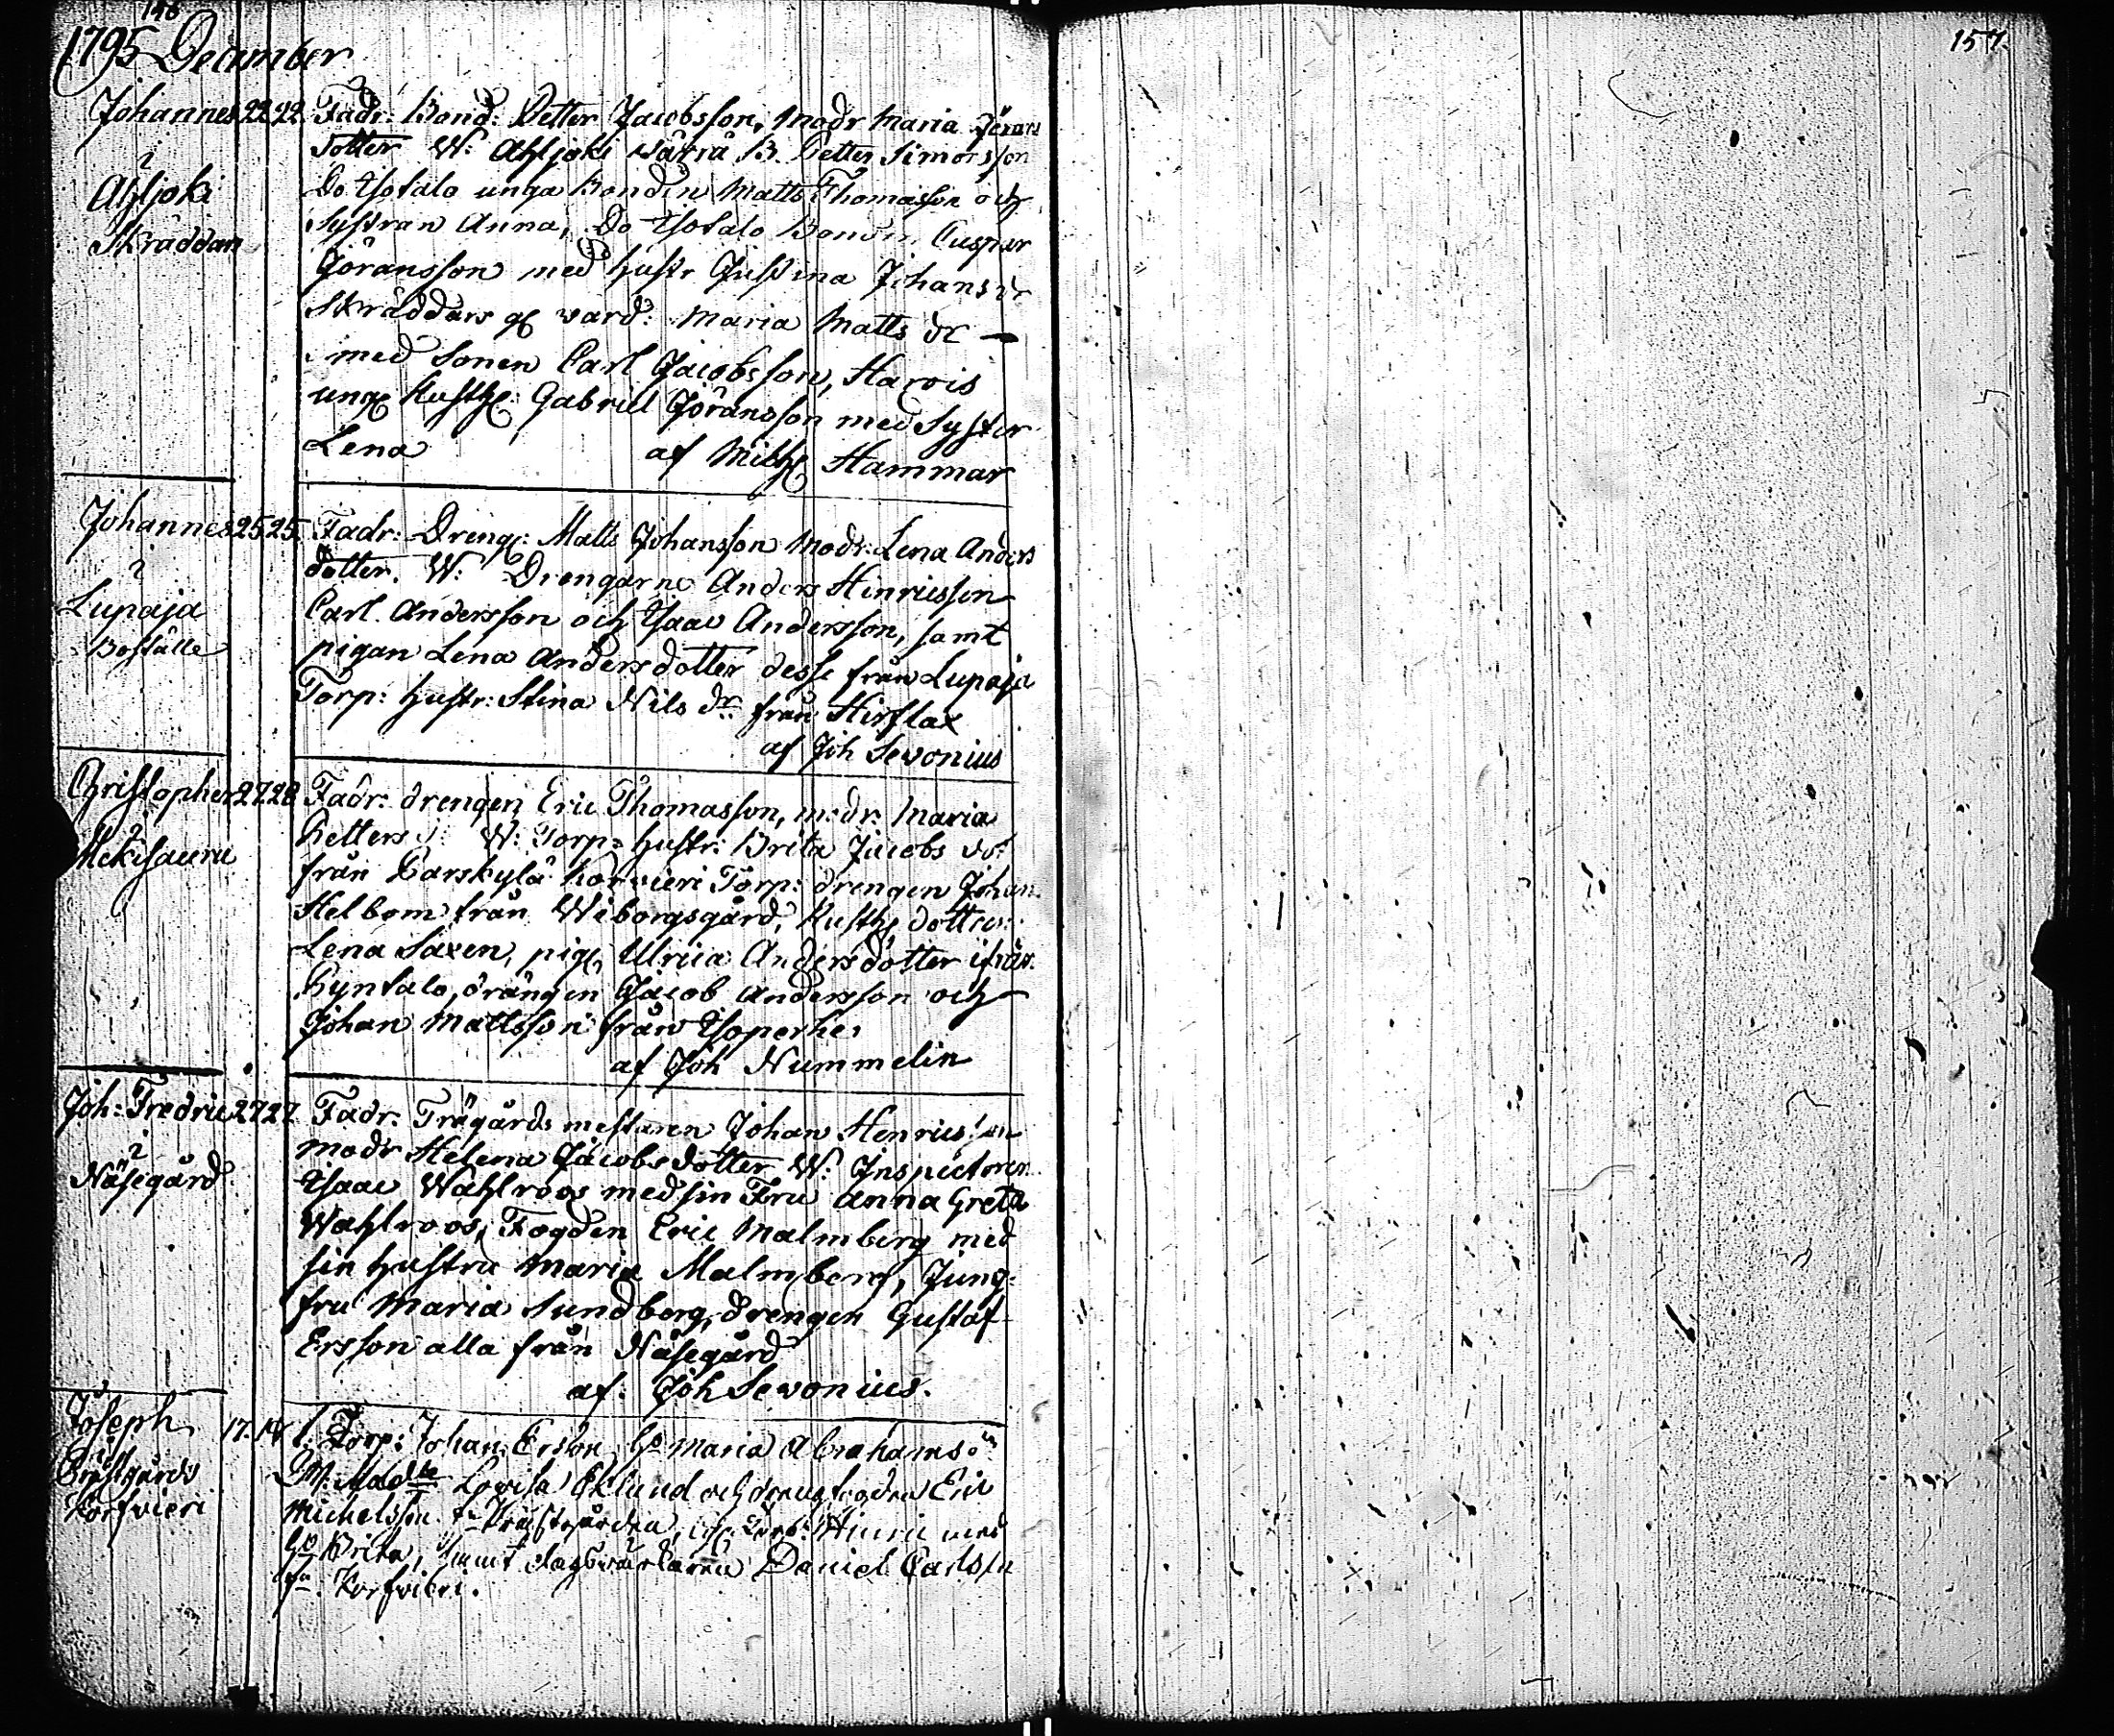 146
1795 December
157.
Johannes 22 22
i
Ahljoki
Skräddari
Fadr: Bond: Petter Jacobsson, Modr Maria Jörans
dotter W: Ahljoki B. Petter Simonsson
Do Isotalo unga Bonden Matts Thomasson och
Systran Anna, Do Isotalo Bonden Caspar
Jöransson med hustr Justina Johans dr
Skräddars g värd: Maria Matts dr
med Sonen Carl Jacobsson, Harvis
ung Rusth: Gabriel Jöransson med Syster
Lena af Mich Hammar
Johannes 25 25
i
Lupaja
Boställe
Fadr: Dreng: Matts Johansson Modr: Lena Anders
dotter. W: Drengarne Anders Hinricsson
Carl Andersson och Isaac Andersson, samt
pigan Lena Andersdotter desse från Lupaja
Torp: hustr: Stina Nils dr från Hirflax
af Joh Sevonius
Christopher 27 28
i
Mekisauru
Fadr: drengen Eric Thomasson, modr: Maria
Petters W: Torp: hustr: Brita Jacobs do:
från Karskylä Korvieri Torp: drengen Johan
Helbom från Wiborgsgård, Rusth dottren
Lena Saxen, pig, Ulrica Andersdotter ifrån
Kyntalo, drängen Jacob Andersson och
Johan Mattsson från Isoperhe
af Joh Nummelin
Joh: Fredric 27 27
i
Näsegård
Fadr. Trägårds mestaren Johan Henricsson
modr Helena Jacobsdotter W: Inspectoren
Isaac Wahlroos med sin Fru Anna Greta
Wahlroos, Fogden Eric Malmberg med
sin hustru Maria Malmberg, Jung-
fru Maria Sundborg, drengen Gustaf
Ersson alla från Näsegård
af. Joh Sevonius.
Joseph 17. 18
Prästgårds
Korfvieri
f. Torp: Johan Ersson, Ho Maria Abrahams dr
Madlle Lovisa Eklund och drengfogden Eric
Michelsson fr Prästgården, Torp: Hinric med
Ho Brita, samt dagsvärkarne Daniel Carlsson
fr. Korfvieri.